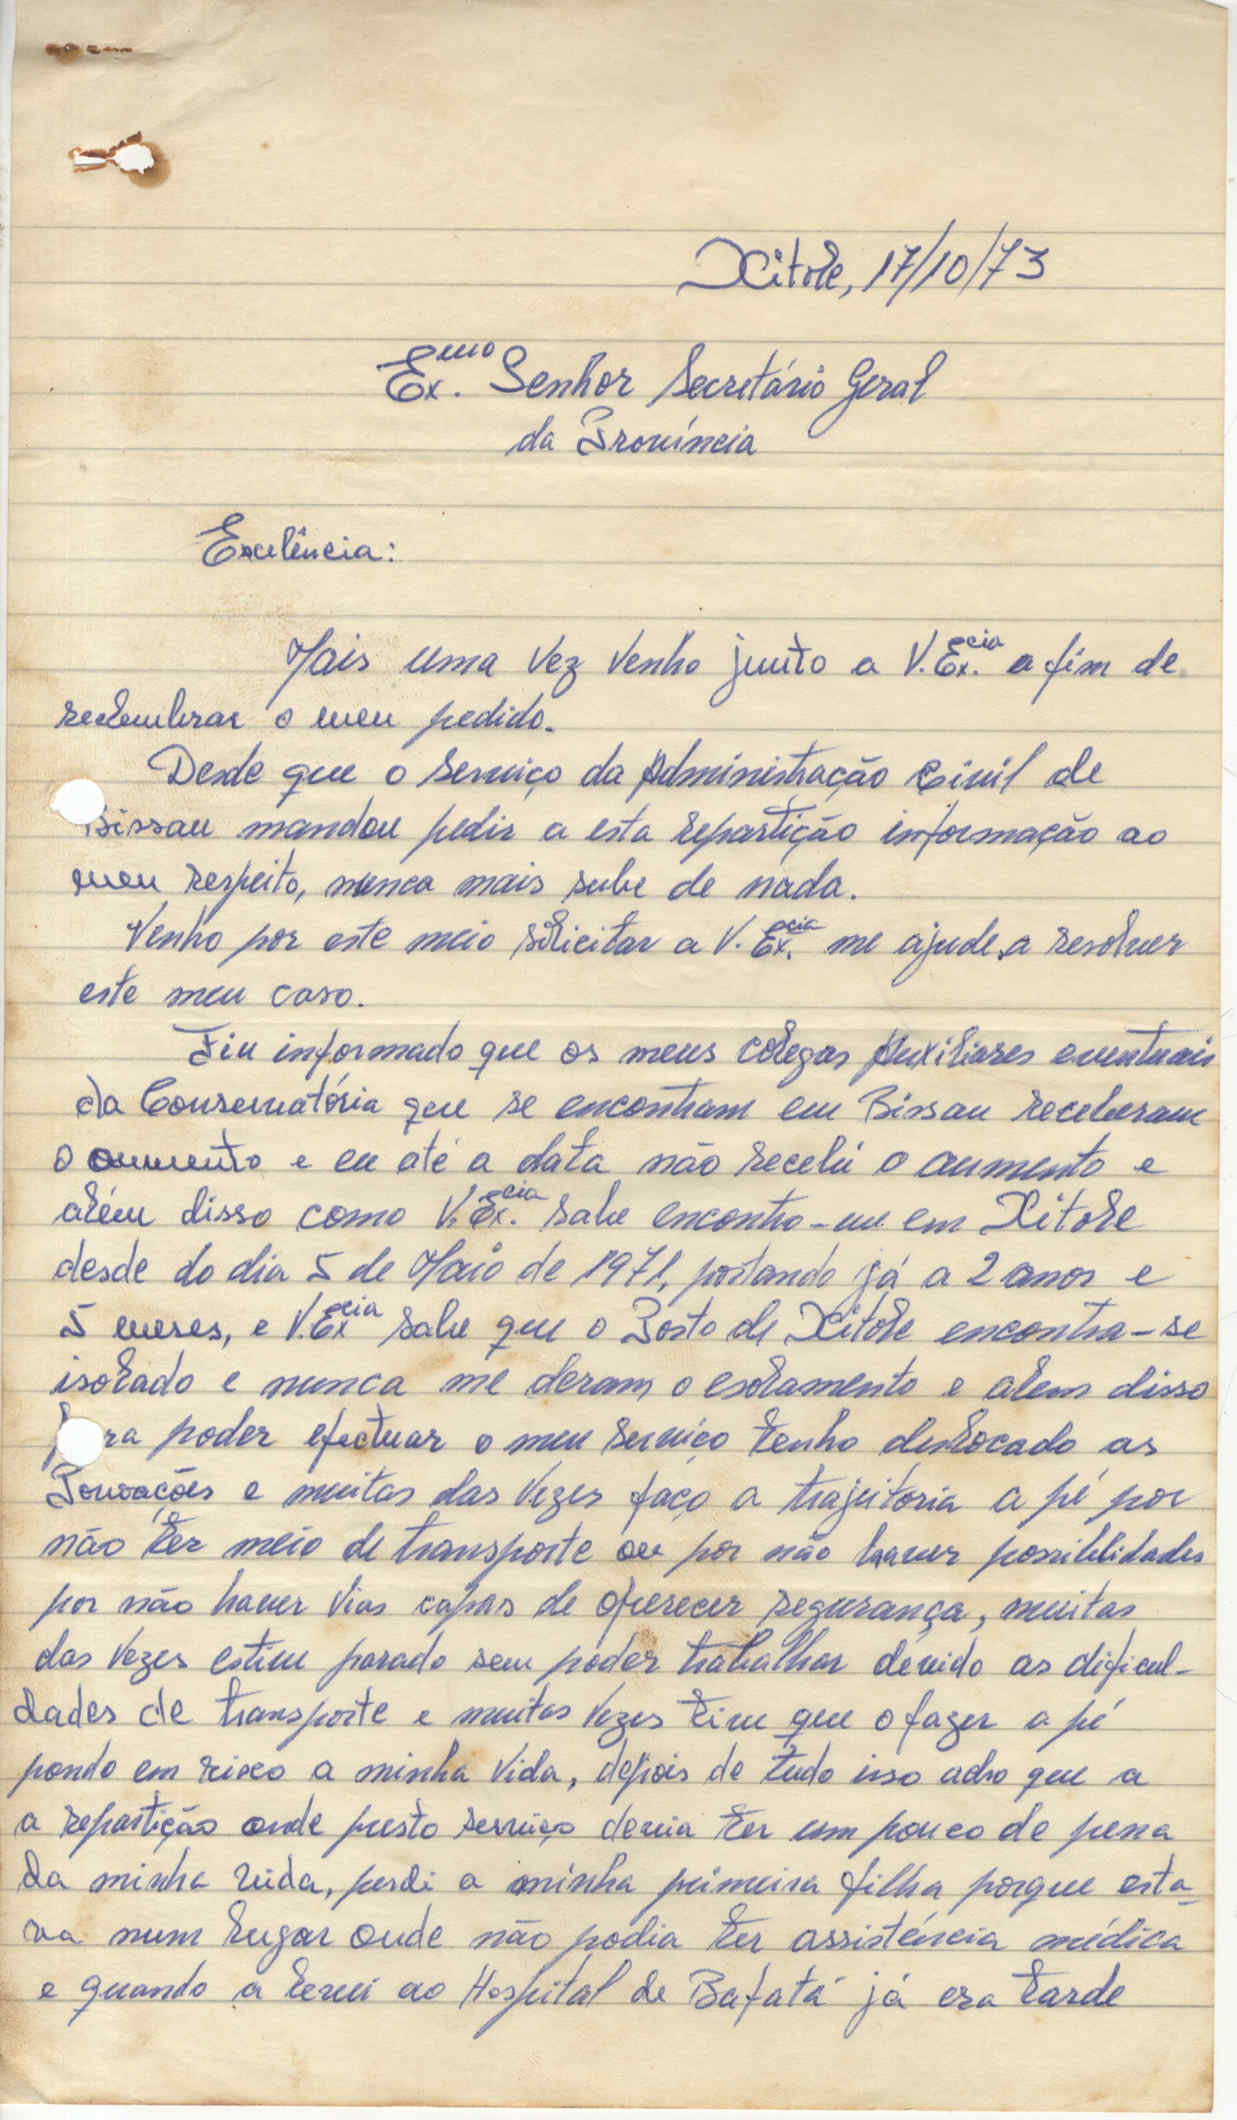 Xitole, 17/10/73
Ex.mo Senhor Secretário Geral
da Província
Excelência:
Mais uma vez venho junto a V.Ex.cia a fim de
relembrar o meu pedido.
Desde que o serviço da Administração Civil de
Bissau mandou pedir a esta repartição informação ao
meu respeito, nunca mais sube de nada.
Venho por este meio solicitar a V. Ex.cia me ajude a resolver
este meu caso.
Fiu informado que os meus colegas Auxiliares eventuais
da Conservatória que se encontram em Bissau receberam
o aumento e eu até a data não recebi o aumento e
além disso como V.Ex.cia sabe encontro-me em Xitole
desde do dia 5 de Maio de 1971, portando já a 2 anos e
5 meses, e V.Excia sabe que o Posto de Xitole encontra-se
isolado e nunca me deram o esolamento e alem disso
para poder efectuar o meu serviço tenho deslocado as
Povoações e muitas das vezes faço a trajeitoria a pé por
não ter meio de transporte ou por não haver possibilidades
por não haver vias capas de oferecer segurança, muitas
das vezes estive parado sem poder trabalhar devido as dificul-
dades de transporte e muitas vezes tive que o fazer a pé
pondo em risco a minha vida, depois de tudo isso acho que a
a repartição onde presto serviço devia ter um pouco de pena
da minha vida, perdi a minha primeira filha porque esta-
va num lugar onde não podia ter assistência médica
e quando a levei ao Hospital de Bafatá já era tarde